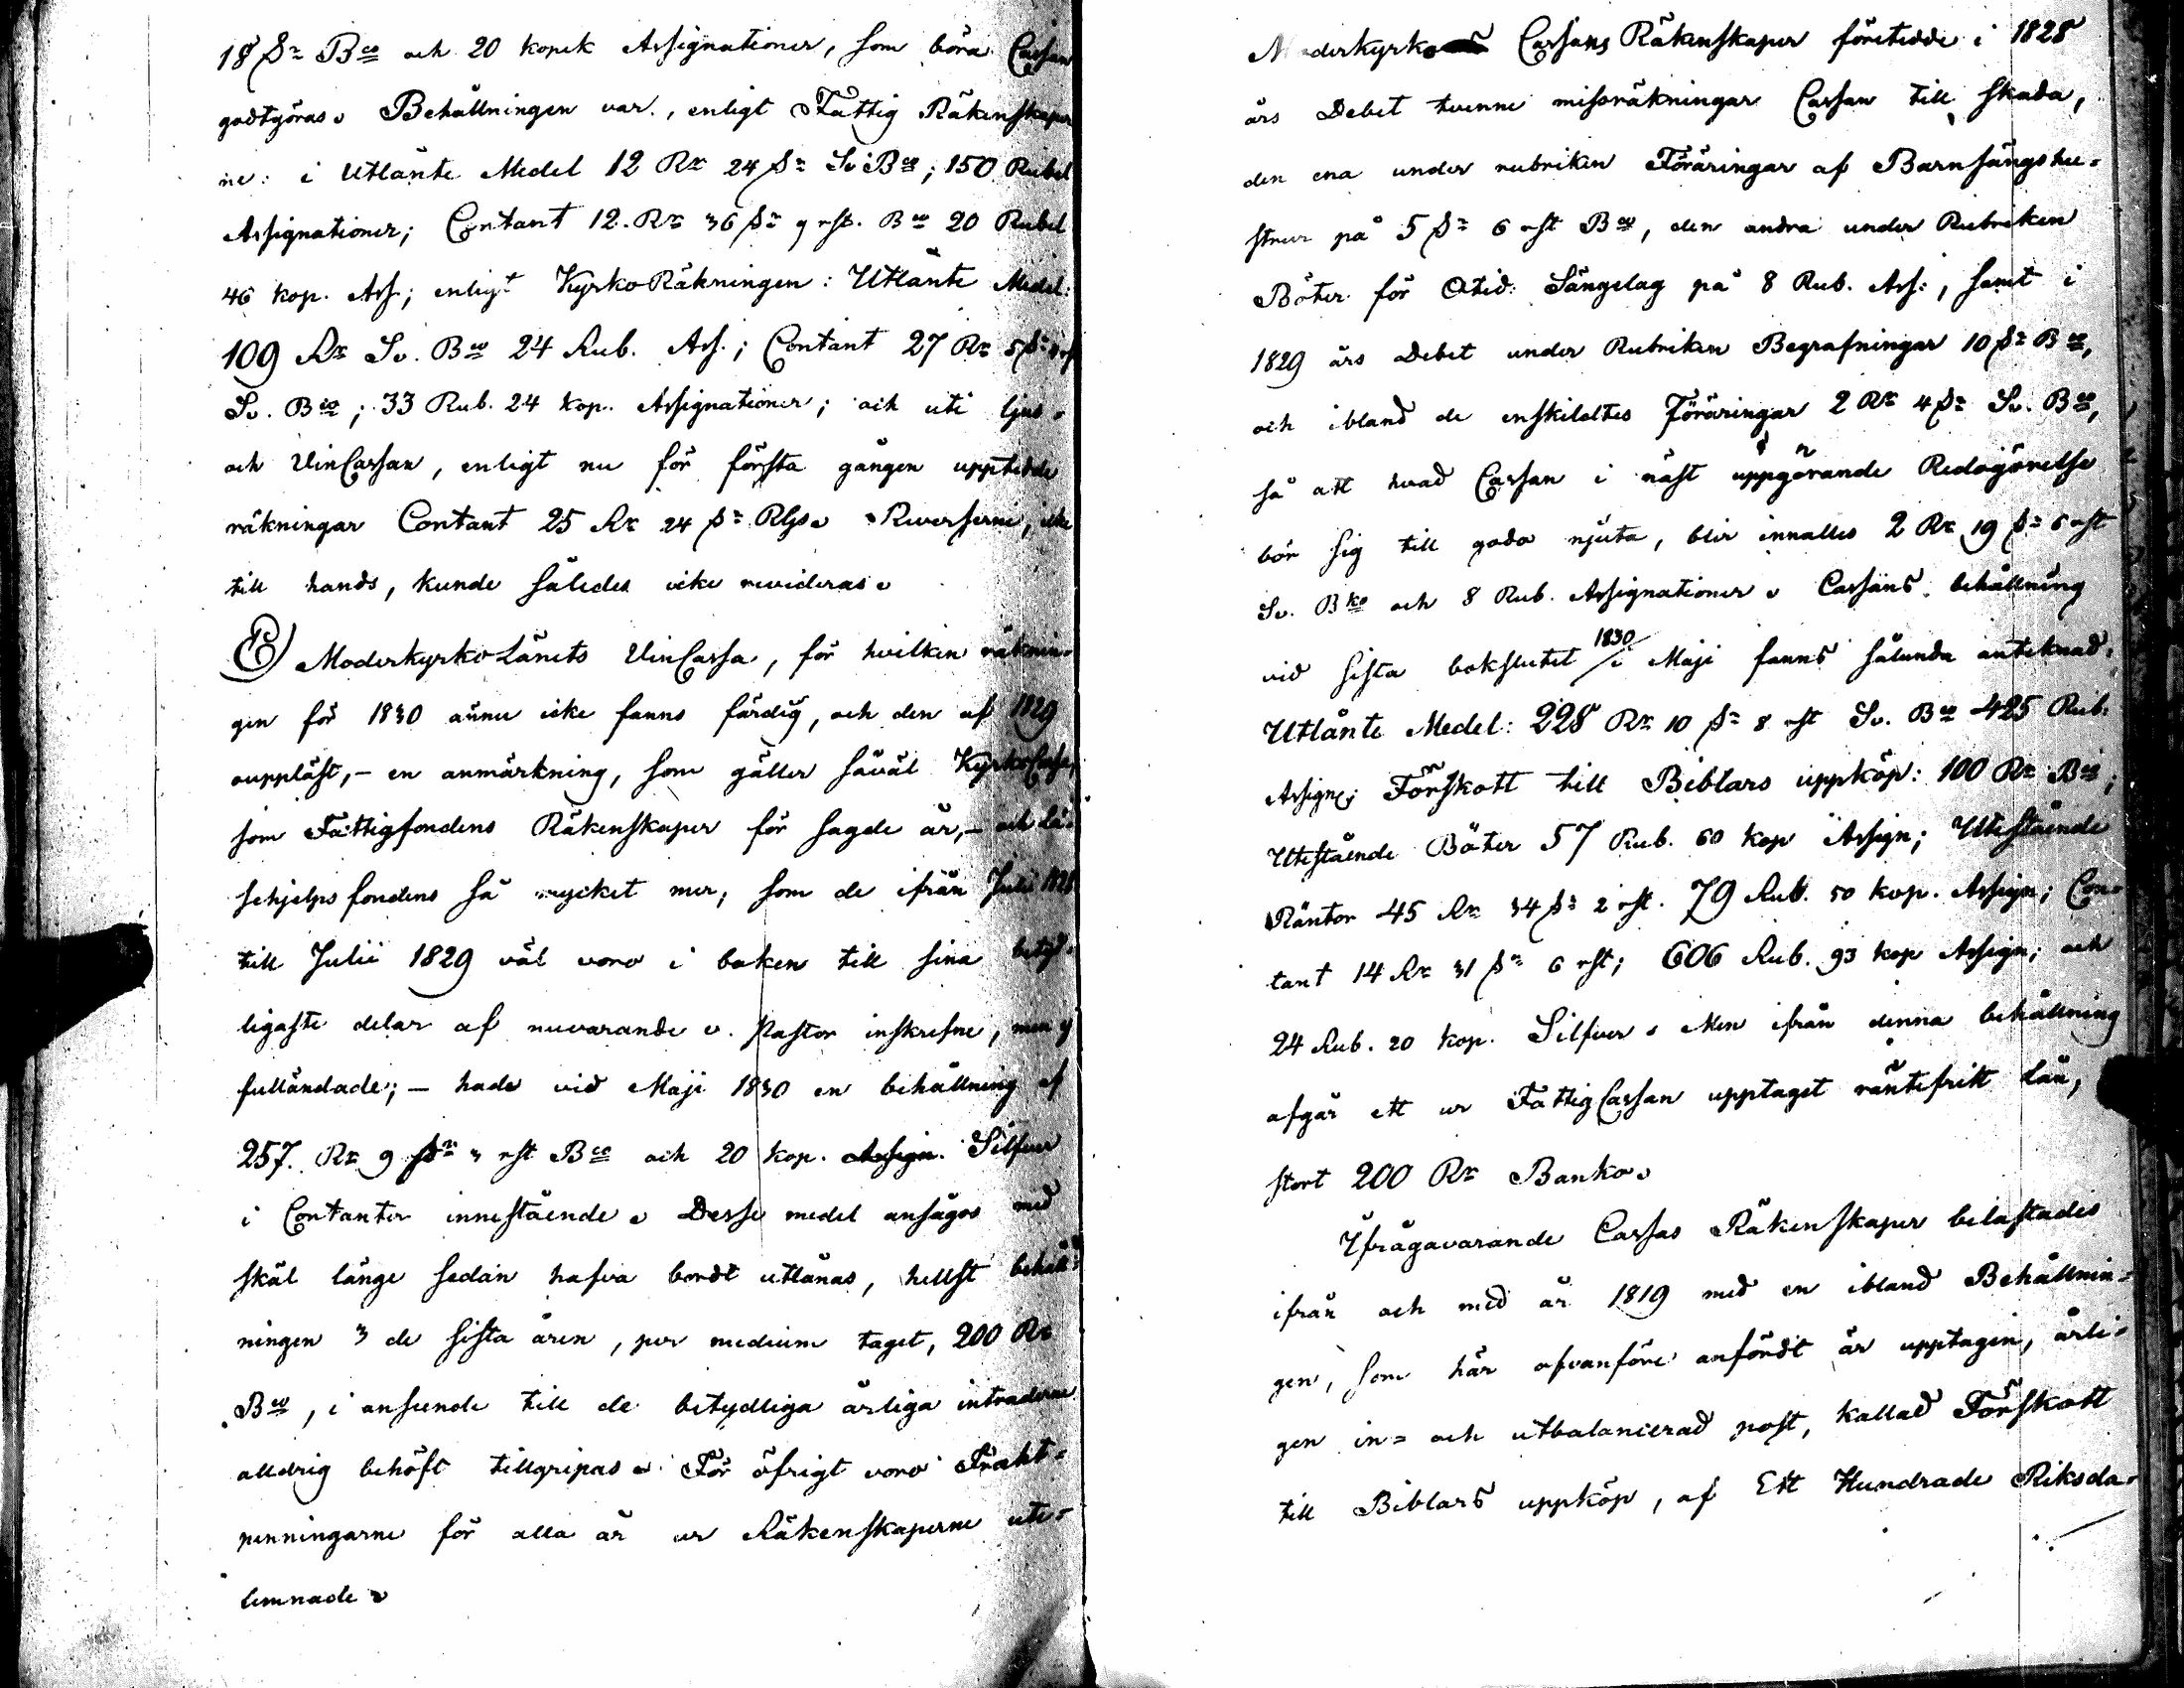 18 S:r B:co och 20 kopek Assignationer, som böra Cassan
godtgöras. Behållningen var, enligt Fattig Räkenskaper
ne: i Utlånte Medel 12 R:r 24 S:r Sv. B:co; 150 Rubel
Assignationer; Contant 12. R:r 36 S:r 9 rst. B:co 20 Rubel
46 kop. Ass.; enligt KyrkoRäkningen: Utlånte Medel:
109 R:r Sv. B:co 24 Rub. Ass.; Contant 27 R:r 5 S:r
Sv. B:co; 33 Rub. 24 kop. Assignationer; och uti ljus-
och VinCassan, enligt nu för första gången upptedde
räkningar Contant 25 R:r 24 S:r Rgs. Reverserne, icke
till hands, kunde således icke revideras.
E) Moderkyrko Länets VinCassa, för hvilken räknin-
gen för 1830 ännu icke fanns färdig, och den af 1829
oupplåst, – en anmärkning, som gäller såväl KyrkoCassa,
som Fattigfondens Räkenskaper för sagde år, – och lä-
sehjelps fondens så mycket mer, som de ifrån Julii 1828
till Julii 1829 väl voro i boken till sina betyd-
ligaste delar af nuvarande v. Pastor inskrefne, men ej
fulländade; – hade vid Maji 1830 en behållning af
257. R:r 9 S:r 3 rst B:co och 20 kop. Assign. Silfver
i Contanter innestående. Desse medel ansågos med
skäl länge sedan hafva bordt utlånas, hellst behåll-
ningen 3 de sista åren, per medium taget, 200 R:r
B:co, i anseende till de betydliga årliga intraderne
alldrig behöft tillgripas. För öfrigt voro Frakt-
penningarne för alla år ur Räkenskaperne ute-
lemnade.
Moderkyrko Cassans Räkenskaper företedde i 1828
års Debet tvenne missräkningar Cassan till skada,
den ena under rubriken Föräringar af Barnsängshu-
strur på 5 S:r 6 rst B:co, den andra under Rubriken
Böter för Otid. Sängelag på 8 Rub. Ass:, samt i
1829 års Debet under Rubriken Begrafningar 10 S:r B:co,
och ibland de enskildtes Föräringar 2 R:r 4 S:r Sv. B:co,
så att hvad Cassan i näst uppgörande Redogörelse
bör sig till godo njuta, blir innalles 2 R:r 19 S:r 6 rst
Sv. B:ko och 8 Rub. Assignationer. Cassans behållning
vid sista bokslutet i Maji 1830 fanns sålunda anteknad:
Utlånte Medel: 228 R:r 10 S:r 8 rst Sv. B:co 425 Rub.
Assign; Förskott till Biblars uppköp: 100 R:r B:co;
Utestående Böter 57 Rub. 60 kop Assign; Utestående
Räntor 45 R:r 34 S:r 2 rst. 79 Rub. 50 kop. Assign; Con-
tant 14 R:r 31 S:r 6 rst; 606 Rub. 93 kop Assign; och
24 Rub. 20 kop. Silfver. Men ifrån denna behållning
afgår ett ur FattigCassan upptaget räntefritt lån,
stort 200 R:r Banko.
Ifrågavarande Cassas Räkenskaper belastades
ifrån och med år 1819 med en ibland Behållnin-
gen, som här ofvanföre anfördt är upptagen, årli-
gen in- och utbalancerad post, kallad Förskott
till Biblars uppköp, af Ett Hundrade Riksda-